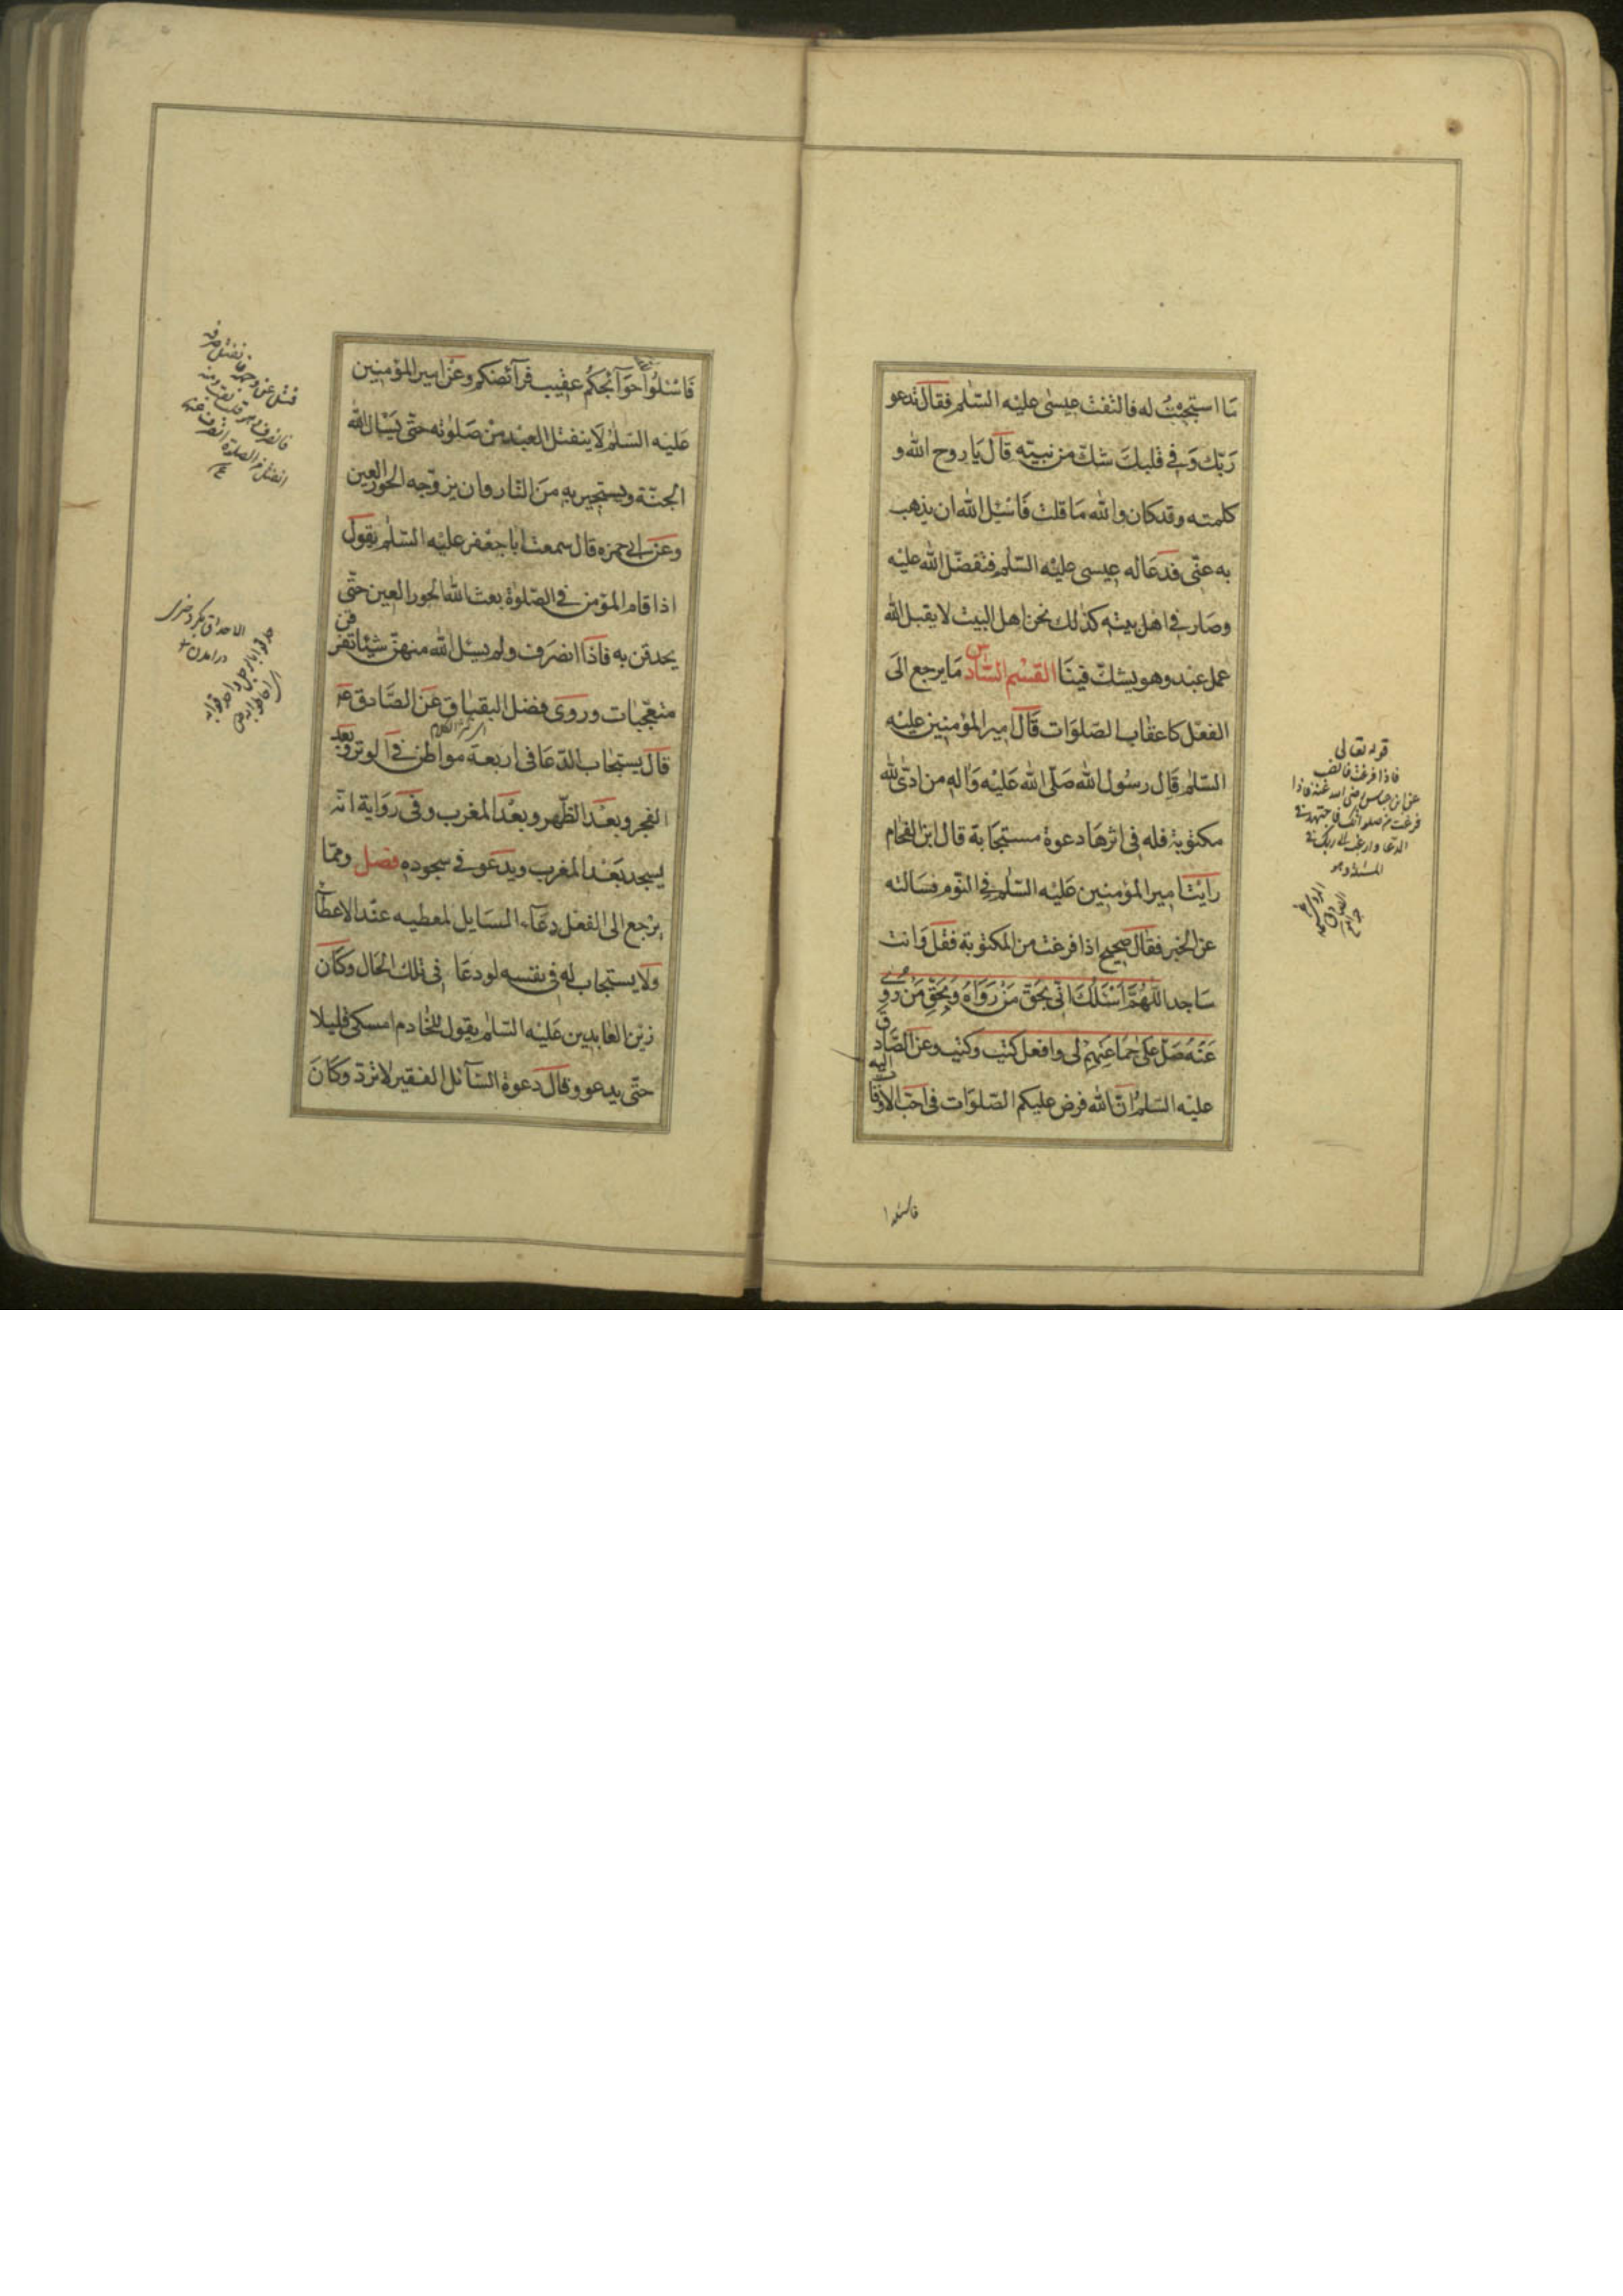 ما استجبت له فالتفت عيسى عليه السلم فقال تدعو
ربك وفي قلبك شك من نبيه قال يا روح الله و
كلمته وقد كان والله ما قلت فاسئل الله ان يذهب
به عنى فدعا له عيسى عليه السلم فتفضل الله عليه
وصار في اهل بيته كذلك نحن اهل البيت لا يقبل الله
عمل عبد وهو يشك فينا القسم السادس ما يرجع الى
الفعل كاعقاب الصلوات قال امير المؤمنين عليه
السلم قال رسول الله صلى الله عليه واله من ادى لله
مكتوبة فله في اثرها دعوة مستجابة قال ابن الفحام
رايت امير المؤمنين عليه السلم في النوم فسالته
عن الخبر فقال صحيح اذا فرغت من المكتوبة فقل وانت
ساجد اللهم اسئلك انى بحق من رواه وبحق من روى
عنه صل على جماعتهم لى وافعل كيت وكيت وعن الصادق
عليه السلم ان الله فرض عليكم الصلوات في احب الاوقات اليه
قوله تعالى
فاذا فرغت فانصب
عن ابن عباس رضى الله عنه فاذا
فرغت من صلواتك فاجتهد في
الدعا وارغب الى ربك في
المسئلة وهو
فاسئلوا
فاسئلوا حوآئجكم عقيب فرآئضكم وعن امير المؤمنين
عليه السلم لا ينفتل العبد من صلوته حتى يسال الله
الجنة ويستجير به من النار وان يزوجه الحور العين
وعن ابى حمزه قال سمعت ابا جعفر عليه السلم يقول
اذا قام المؤمن في الصلوة بعث الله الحور العين حتى
يحدقن به فاذا انصرف ولم يسئل الله منهن شيئا تفرقن
متعجبات وروى فضل البقباق عن الصادق عم
قال يستجاب الدعا في اربعة مواطن في الوتر وبعد
الفجر وبعد الظهر وبعد المغرب وفي رواية انه
يسجد بعد المغرب ويدعو في سجوده فصل ومما
يرجع الى الفعل دعاء السايل لمعطيه عند الاعطاء
ولا يستجاب له في نفسه لو دعا في ذلك الحال وكان
زين العابدين عليه السلم يقول للخادم امسكى قليلا
حتى يدعو وقال دعوة السآئل الفقير لا ترد وكان